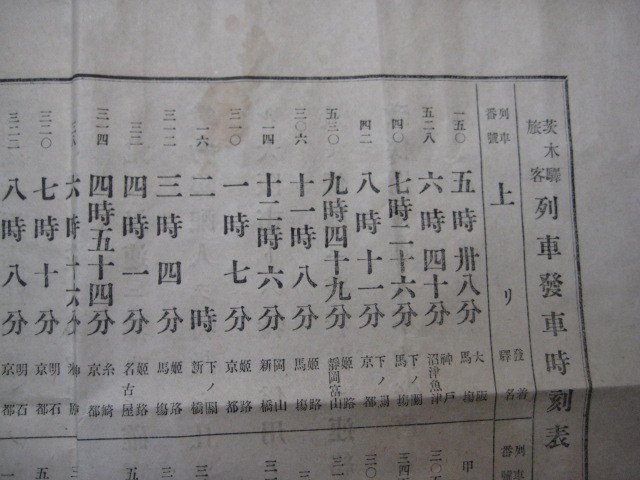 茨木驛旅客列車發車時刻表
列車番號 上リ 發着驛名
一五〇 五時卅八分 大阪 馬塲
五二八 六時四十分 神戸 沼津魚津
四〇 七時二十六分 下ノ關 馬塲
四二 八時十一分 下ノ關 京都
五三〇 九時四十九分 姫路 靜岡富山
三〇六 十一時八分 姫路 馬塲
一四 十二時六分 岡山 新橋
三一〇 一時七分 姫路 京都
一六 二時 下ノ關 新橋
三一二 三時四分 姫路 馬塲
三二 四時一分 姫路 名古屋
三一四 四時五十四分 糸崎 京都
六時十六分
三二〇 七時十分 明石 京都
三二二 八時八分 明石 京都
列車番號
甲